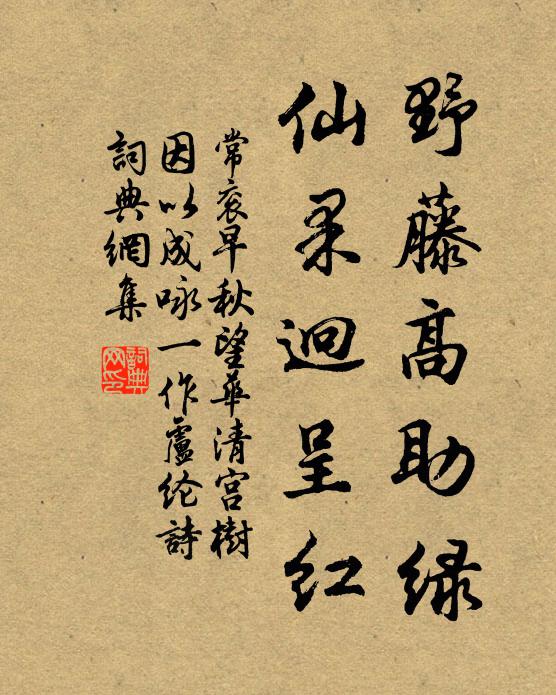 野藤高助绿
仙果迥呈红
常衮早秋望華清宫樹
因以成咏一作盧纶詩
詞典網集
詞典网印